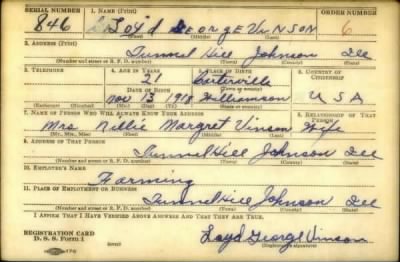 SERIAL NUMBER 1. NAME (Print) ORDER NUMBER
846 Loyd George Vinson 6
(First) (Middle) (Last)
2. ADDRESS (Print)
Tunnel Hill Johnson Ill
(Number and street or R. F. D. number) (Town) (County) (State)
3. TELEPHONE 4. AGE IN YEARS 5. PLACE OF BIRTH 6. COUNTRY OF CITIZENSHIP
21 Carterville
DATE OF BIRTH (Town or county)
Nov 13 1918 Williamson U S A
(Exchange) (Number) (Mo.) (Day) (Yr.) (State or country)
7. NAME OF PERSON WHO WILL ALWAYS KNOW YOUR ADDRESS 8. RELATIONSHIP OF THAT PERSON
Mrs Nellie Margret Vinson Wife
(Mr., Mrs., Miss) (First) (Middle) (Last)
9. ADDRESS OF THAT PERSON
Tunnel Hill Johnson Ill
(Number and street or R. F. D. number) (Town) (County) (State)
10. EMPLOYER'S NAME
Farming
11. PLACE OF EMPLOYMENT OR BUSINESS
Tunnel Hill Johnson Ill
(Number and street or R. F. D. number) (Town) (County) (State)
I AFFIRM THAT I HAVE VERIFIED ABOVE ANSWERS AND THAT THEY ARE TRUE.
REGISTRATION CARD
D. S. S. Form 1
Loyd George Vinson
(Registrant's signature)